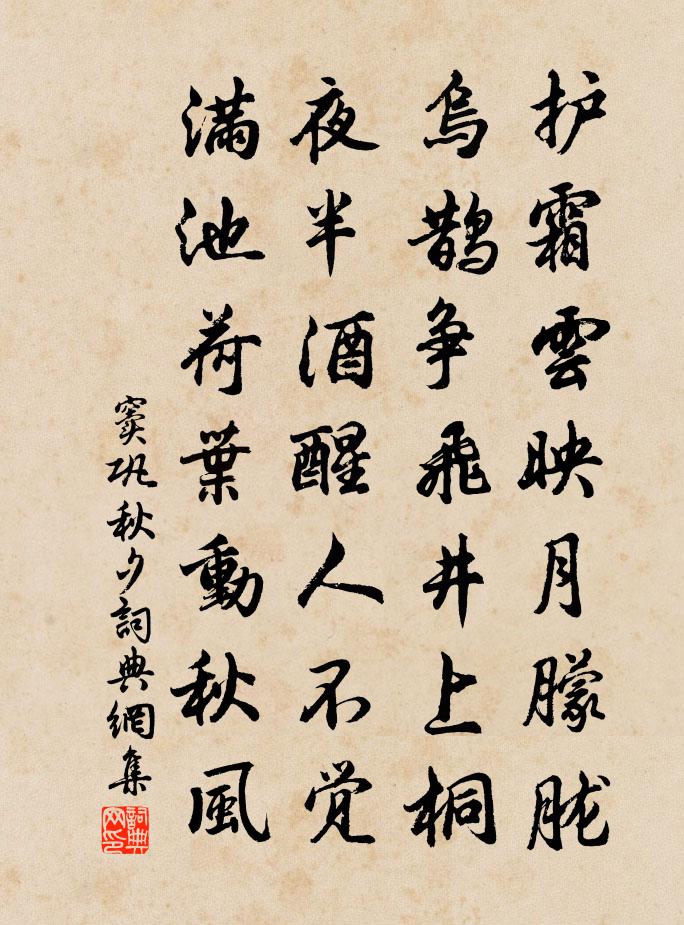 护霜雲映月朦胧
烏鵲争飛井上桐
夜半酒醒人不觉
滿池荷葉動秋風
窦巩秋夕詞典網集
詞典网印